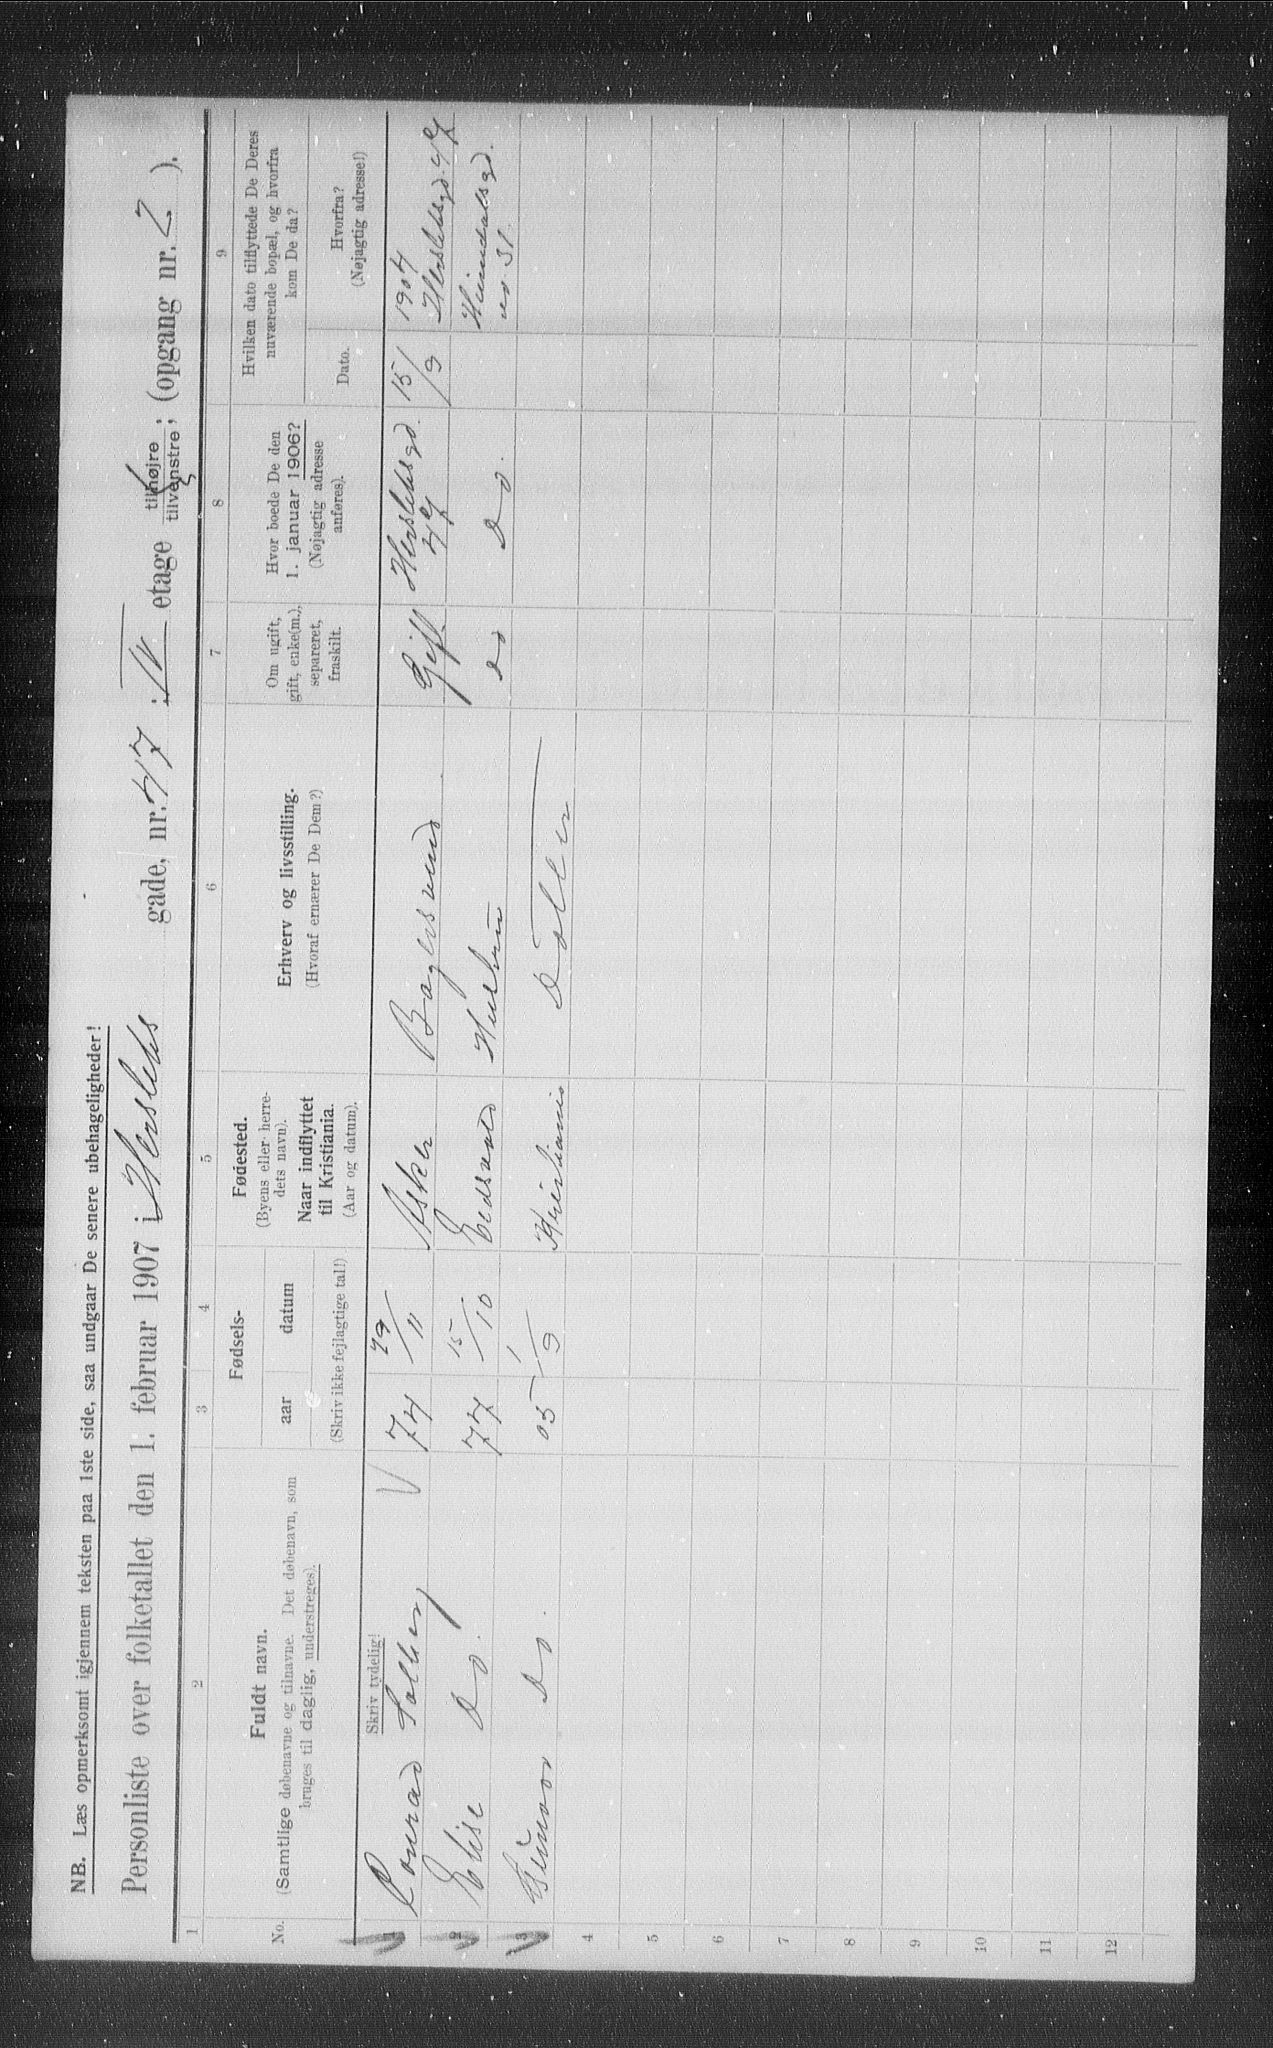 NB. Læs opmerksomt igjennem teksten paa 1ste side, saa undgaar De senere ubehageligheder!
Personliste over folketallet den 1. februar 1907 i Herslebs gade, nr. 47 ; IV etage tilhøjre tilvenstre; (opgang nr. 2 ).
1 2 3 4 5 6 7 8 9
No.
Fuldt navn.
(Samtlige døbenavne og tilnavne. Det døbenavn, som
bruges til daglig, understreges).
Skriv tydelig!
Fødsels-
aar datum
(Skriv ikke fejlagtige tal!)
Fødested.
(Byens eller herre-
dets navn).
Naar indflyttet
til Kristiania.
(Aar og datum).
Erhverv og livsstilling.
(Hvoraf ernærer De Dem?)
Om ugift,
gift, enke(m.),
separeret,
fraskilt.
Hvor boede De den
1. januar 1906?
(Nøjagtig adresse
anføres).
Hvilken dato tilflyttede De Deres
nuværende bopæl, og hvorfra
kom De da?
Dato.
Hvorfra?
(Nøjagtig adresse!)
1 Conrad Solberg 74 29/11 Asker Bagersvend Gift Herslebsgd. 15/9 1904 Herslebsgd.
2 Elise Do. 77 15/10 Eidsvold Hustru do Do. Heimdalsgd.
no. 31.
3 Gunvor Do. 05 1/9 Kristiania Datter
4
5
6
7
8
9
10
11
12